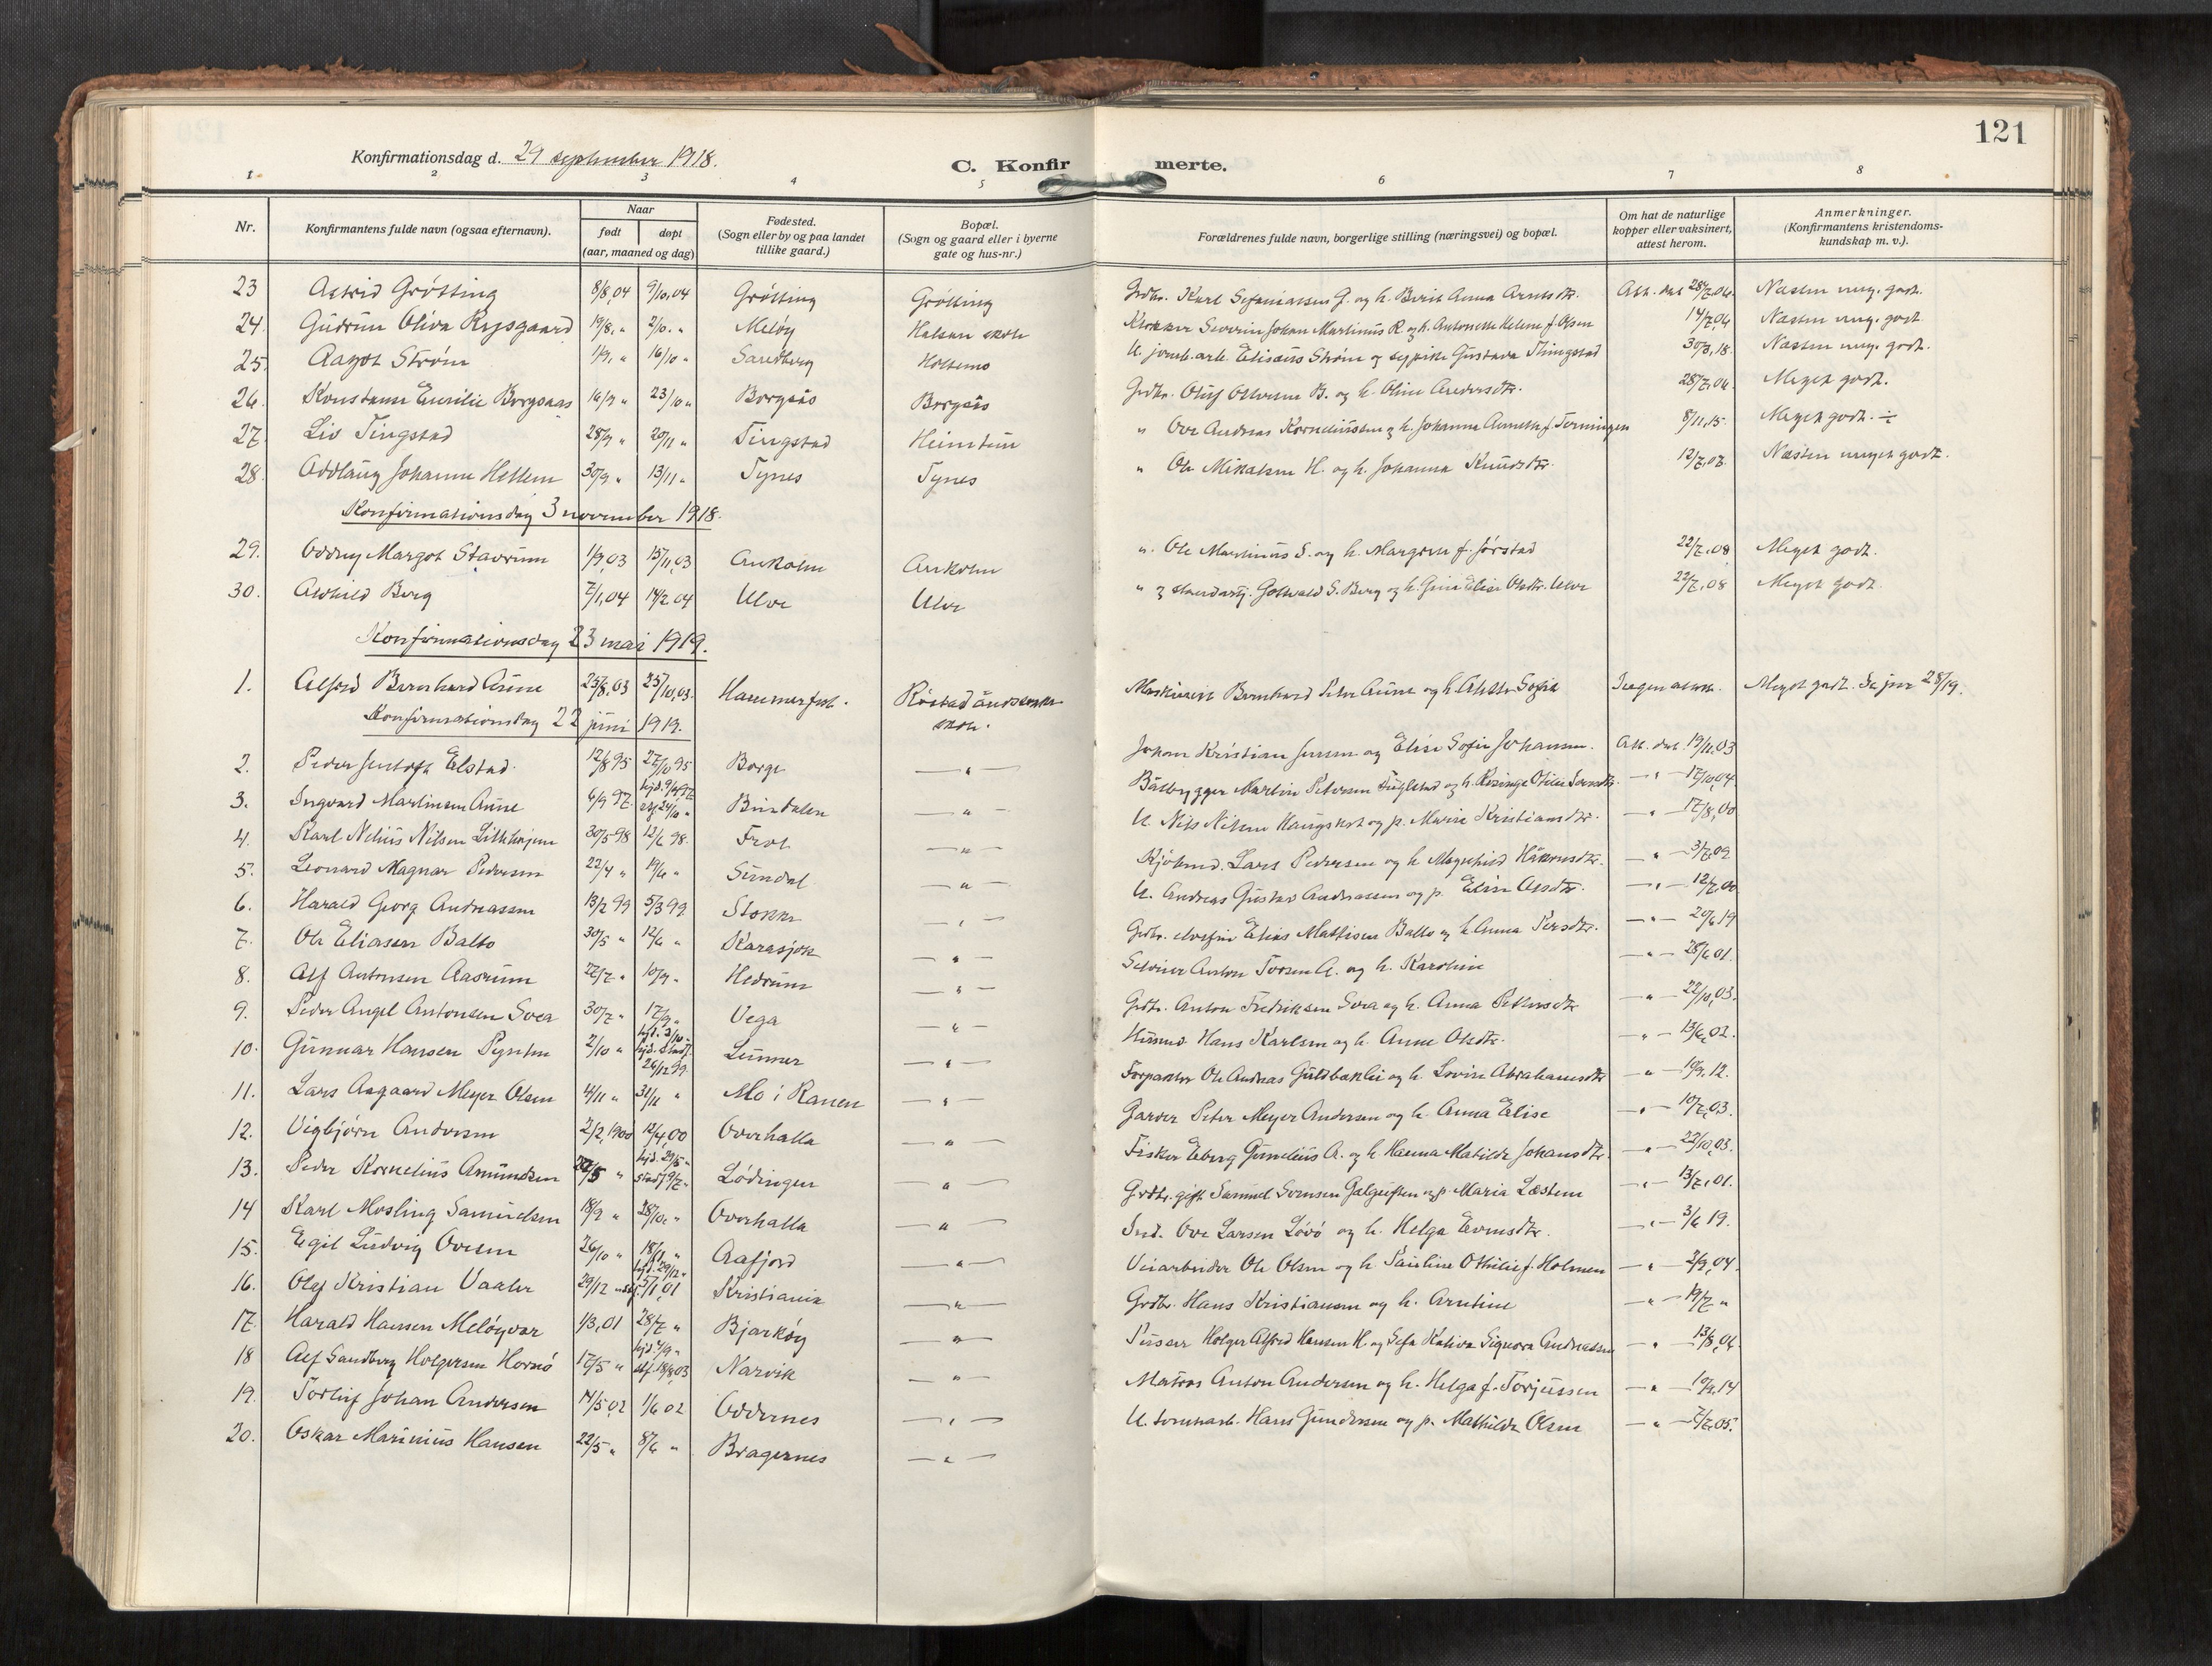 121
Konfirmationsdag d. 29 september 1918.
C. Konfirmerte.
1 2 3 4 5 6 7 8
Nr.
Konfirmantens fulde navn (ogsaa efternavn).
Naar
født
døpt
(aar, maaned og dag)
Fødested.
(Sogn eller by og paa landet
tillike gaard.)
Bopæl.
(Sogn og gaard eller i byerne
gate og hus-nr.)
Forældrenes fulde navn, borgerlige stilling (næringsvei) og bopæl.
Om hat de naturlige
kopper eller vaksinert,
attest herom.
Anmerkninger.
(Konfirmantens kristendoms-
kundskap m. v.).
23 Astrid Grøtting 8/8,04 9/10,04 Grøtting Grøtting Grdbr. Karl Sefaniassen G. og h. Berit Anna Arntsdtr. Att. dat 28/7,06. Næsten meg. godt.
24. Gudrun Oliva Rypsgaard 19/8, " 2/10. " Meløy Halsan skole Klokker Severin Johan Martinus R. og h. Antonette Helene f. Olsen 14/7,06 Næsten meg. godt.
25. Aagot Strøm 1/9, " 16/10 " Sandberg Holtemo U. jernb.arb. Elisæus Strøm og sypike Gustava Thingstad 30/3,18. Næsten meg. godt.
26. Konstanse Emilie Borgsaas 16/9 " 23/10 " Borgsås Borgsås Grdbr. Oluf Ottersen B. og h. Oline Andersdtr. 28/7,06. Meget godt.
27. Liv Tingstad 28/9 " 20/11 " Tingstad Heimtun " Ove Andreas Korneliussen og h. Johanna Annette f. Terningen 8/11,15. Meget godt. ÷
28. Oddlaug Johanne Hellem 30/9 " 13/11 " Tynes Tynes " Ole Mikalsen H. og h. Johanna Knudsdtr. 12/7,07. Næsten meget godt.
Konfirmationsdag 3 november 1918.
29. Oddny Margot Stavrum 1/9,03 15/11,03 Ankolm Ankolm ". Ole Martinus S. og h. Margrete f. Jørstad 22/7,08 Meget godt.
30. Aashild Berg 7/1,04 14/2 04 Ulve Ulve " Gotvald S. Berg og h. Gina Elise Olsdtr. Ulve 22/7,08 Meget godt.
Konfirmationsdag 23 mai 1919.
1. Alfred Bernhard Aune 25/8,03 25/10,03. Hammerfest. Røstad åndssvake Maskinist Bernhard Peter Aune og h. Sofie Ingen attest. Meget godt. Se jnr 28/19.
skole.
Konfirmationsdag 22 juni 1919.
2. Peder Jentoft Elstad 12/8 95 27/10 95 Borge — " — Johan Kristian Jensen og Elise Sofie Johansen. Att. dat. 19/11,03
3. Ingvard Martinsen Aune 6/9 97. hjd. 9/9,97 stf 24/10 " Bindalen — " — Båtbygger Martin Petersen Fuglstad og h. — " — 17/10,04.
4. Karl Nelius Nilsen Litlehaugen 30/5 98 12/6 98. Frol — " — U. Nils Nilsen og p. Marie Kristiansdtr. — " — 17/8,00
5. Leonard Magnar Pedersen 22/4 " 19/6 " Sundal — " — Kjøbmd. Lars Pedersen og h. Magnhild Håkonsdtr. — " — 3/7,09
6. Harald Georg Andreassen 13/2 99 5/3 99. Stokke — " — U. Andreas Gustav Andreassen og p. Elise Olsdtr. — " — 12/7,00
7. Ole Eliassen Balto 30/5 " 12/6 " Karasjok — " — Grdbr. Elias Mathisen Balto og h. Anna Persdtr. — " — 20/6 19
8. Alf Antonsen Aasrum 22/7 " 10/9 " Hedrum — " — Anton Torsen A. og h. Karoline — " — 28/6 01.
9. Peder Angel Antonsen Svea 30/7 " 17/9 " Vega — " — Grdbr. Anton Fredriksen Svea og h. Anna Petersdtr. — " — 22/10,03.
10. Gunnar Hansen Pynten 2/10 " hjd. 3/10 " hjd. stadf. 26/12 99. Lunner — " — Husmd. Hans Karlsen og h. Anne Olsdtr. — " — 13/6,02.
11. Lars Aagaard Meyer Olsen 4/11 " 31/12 " Mo i Ranen — " — Forpakter Ole Andreas Guldbakli og h. Lovise Abrahamsdtr — " — 10/9,12.
12. Vigbjørn Andersen 2/2,1900 12/4,00 Overhalla — " — Garver Peter Meyer Andersen og h. Anna Elise — " — 10/7,03.
13. Peder Kornelius Amundsen 22/5 " hjd. 29/5 " stadf 9/7 " Lødingen — " — Fisker Eberg Gunelius A. og h. Hanna Matilde Johansdtr. — " — 22/10,03.
14 Karl Mosling Samuelsen 18/9 " 28/10. " Overhalla — " — Grdbr. gift Samuel Svensen og p. Maria Læstem — " — 13/7,01.
15. Egil Ludvig Ovesen 26/10 " 18/11 " Aafjord — " — Ind. Ove Larsen Løvø og h. Helga Evensdtr. — " — 3/6 19.
16. Olaf Kristian Vaaler 29/12 " hjd. 29/12 " stf. 5/1,01 Kristiania — " — Veiarbeider Ole Olsen og h. Pauline Othilie f. Holmen — " — 2/9,04.
17. Harald Hansen Meløyvær 1/3,01 28/7 " Bjarkøy — " — Grdbr. Hans Kristiansen og h. Arntine — " — 19/7 "
18 Alf Sandberg Holgersen Hornø 17/5 " hjd. 4/9 " stf. 18/8,03 Narvik — " — Pusser Holger Alfred Hansen H. og Sefa Kativa Signora Andreassen — " — 13/8,06.
19. Torleif Johan Andersen 14/5,02 1/6 02 Oddernes — " — Matros Anton Andersen og h. Helga f. Torjussen — " — 10/9,14
20. Oskar Marinius Hansen 22/5 " 8/6 " Bragernes — " — U. tomtearb. Hans Gundersen og p. Mathilde Olsen — " — 7/7,05.